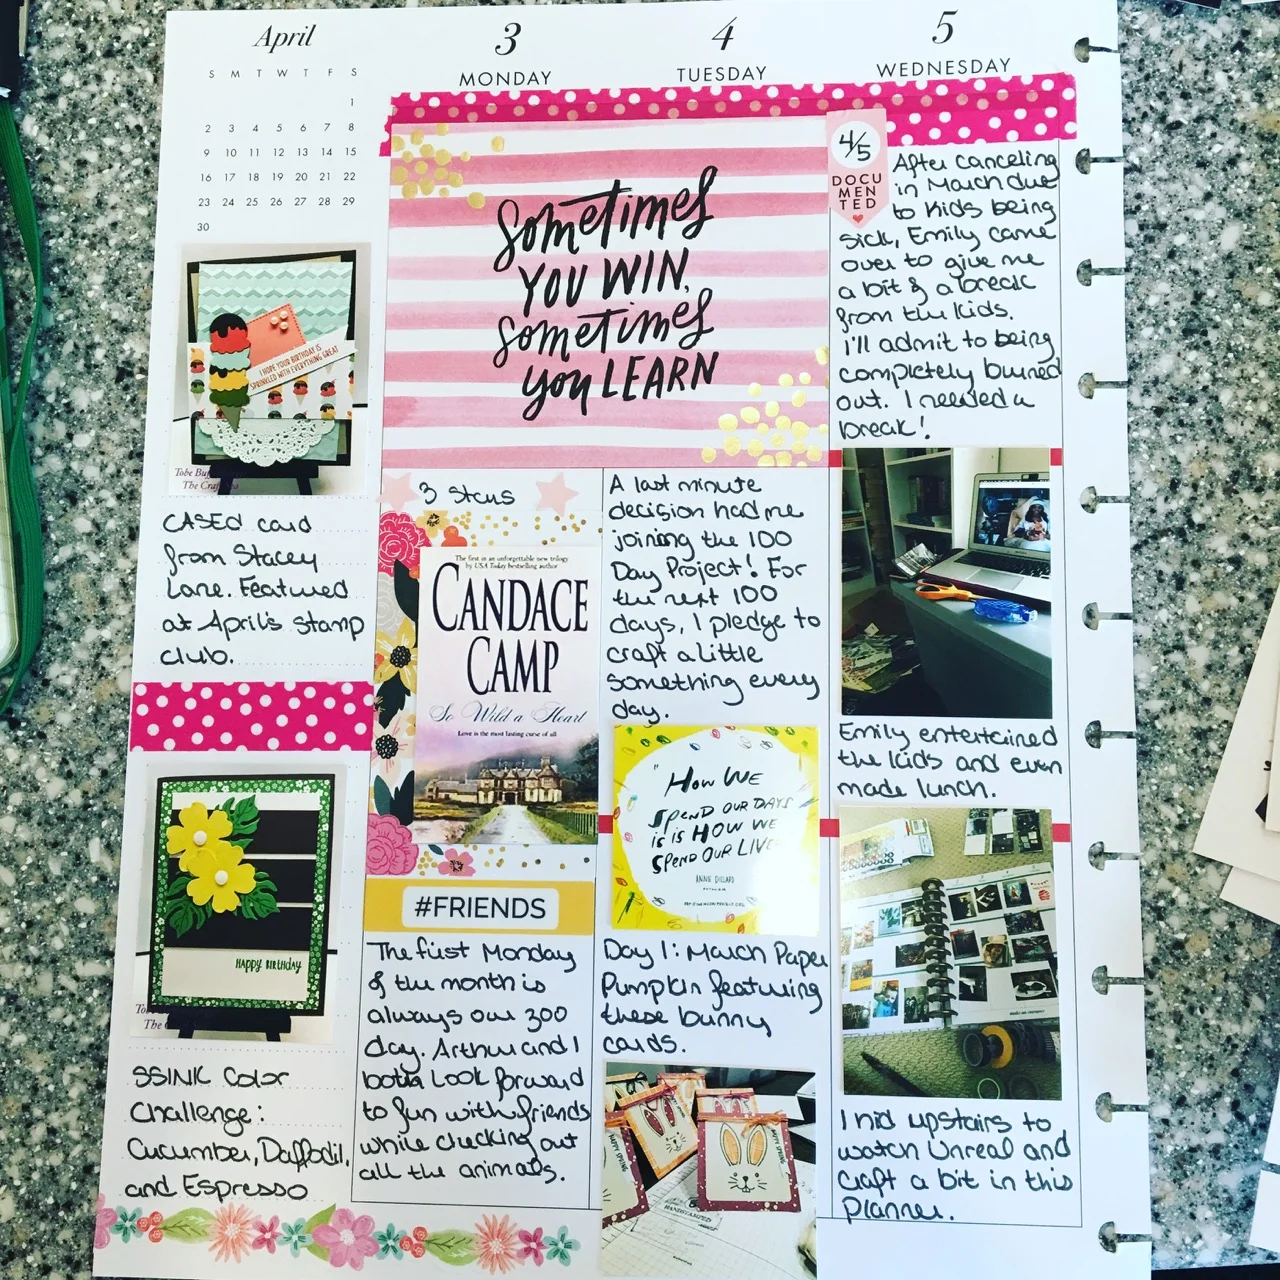 April
S M T W T F S
1
2 3 4 5 6 7 8
9 10 11 12 13 14 15
16 17 18 19 20 21 22
23 24 25 26 27 28 29
30
I HOPE YOUR BIRTHDAY IS
SPRINKLED WITH EVERYTHING GREAT
Tobe
The Craft
CASEd card
from Stacey
Lane. Featured
at April's stamp
club.
HAPPY BIRTHDAY
The
SSINK Color
Challenge:
Cucumber, Daffodil,
and Espresso
3
MONDAY
4
TUESDAY
5
WEDNESDAY
Sometimes
YOU WIN,
Sometimes
you LEARN
3 Stars
The first in an unforgettable new trilogy
by USA Today bestselling author
CANDACE
CAMP
So Wild a Heart
Love is the most lasting curse of all
#FRIENDS
The first Monday
of the month is
always our zoo
day. Arthur and I
both look forward
to fun with friends
while checking out
all the animals.
A last minute
decision had me
joining the 100
Day Project! For
the next 100
days, I pledge to
craft a little
something every
day.
"HOW WE
SPEND OUR DAYS
IS HOW WE
SPEND OUR LIVES
ANNIE DILLARD
Day 1: March Paper
Pumpkin featuring
these bunny
cards.
HAPPY SPRING
HAPPY SPRING
HANDSTAMPED
4/5
DOCU
MEN
TED
After canceling
in March due
to kids being
sick, Emily came
over to give me
a bit of a break
from the kids.
I'll admit to being
completely burned
out. I needed a
break!
Emily entertained
the kids and even
made lunch.
I hid upstairs to
watch Unreal and
craft a bit in this
planner.